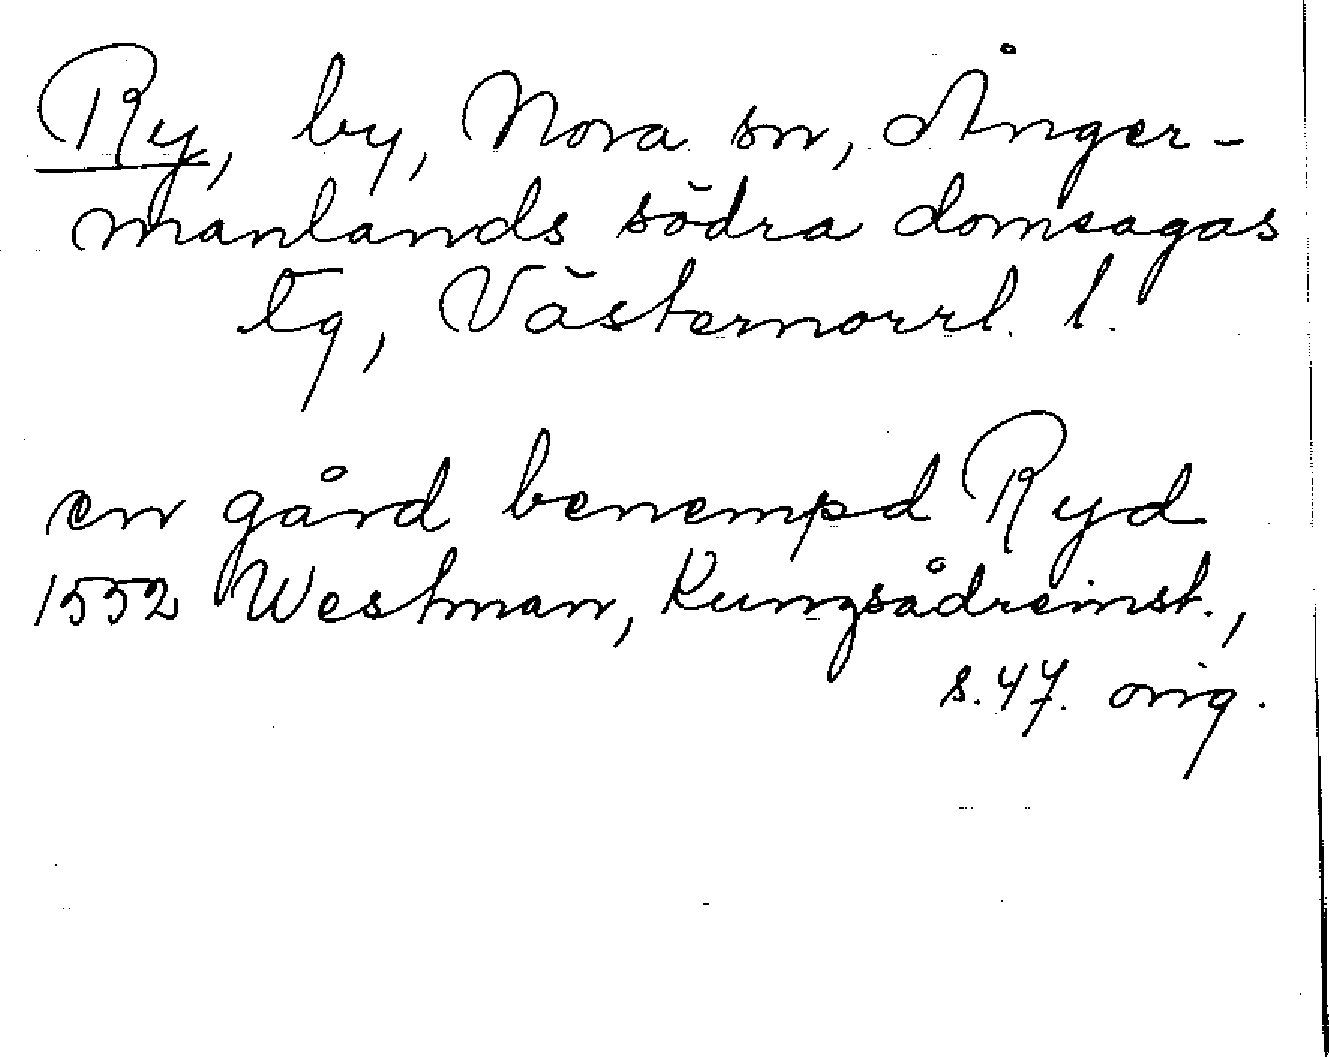 Ry, by, Nora sn, Ånger-
manlands södra domsagas
tg, Västernorrl. l.
en gård benempd Ryd
1552 Westman, Kungsådreinst.,
s. 47. orig.